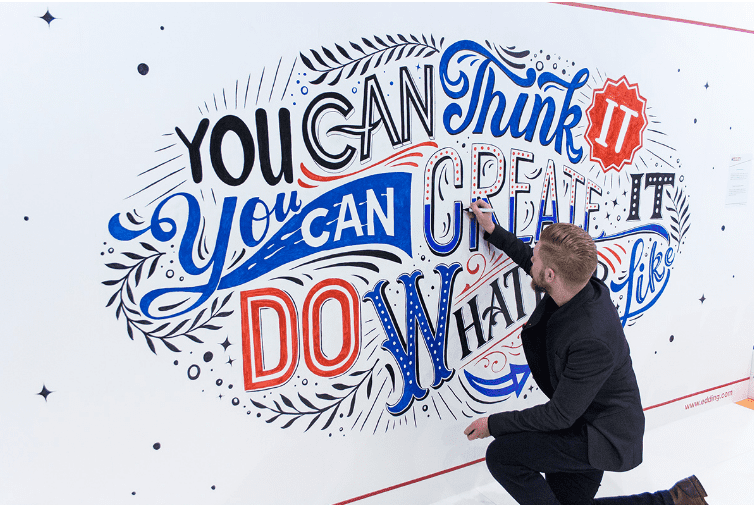 YOU CAN Think IT
You CAN CREATE IT
DO WHATE Like
www.edding.com